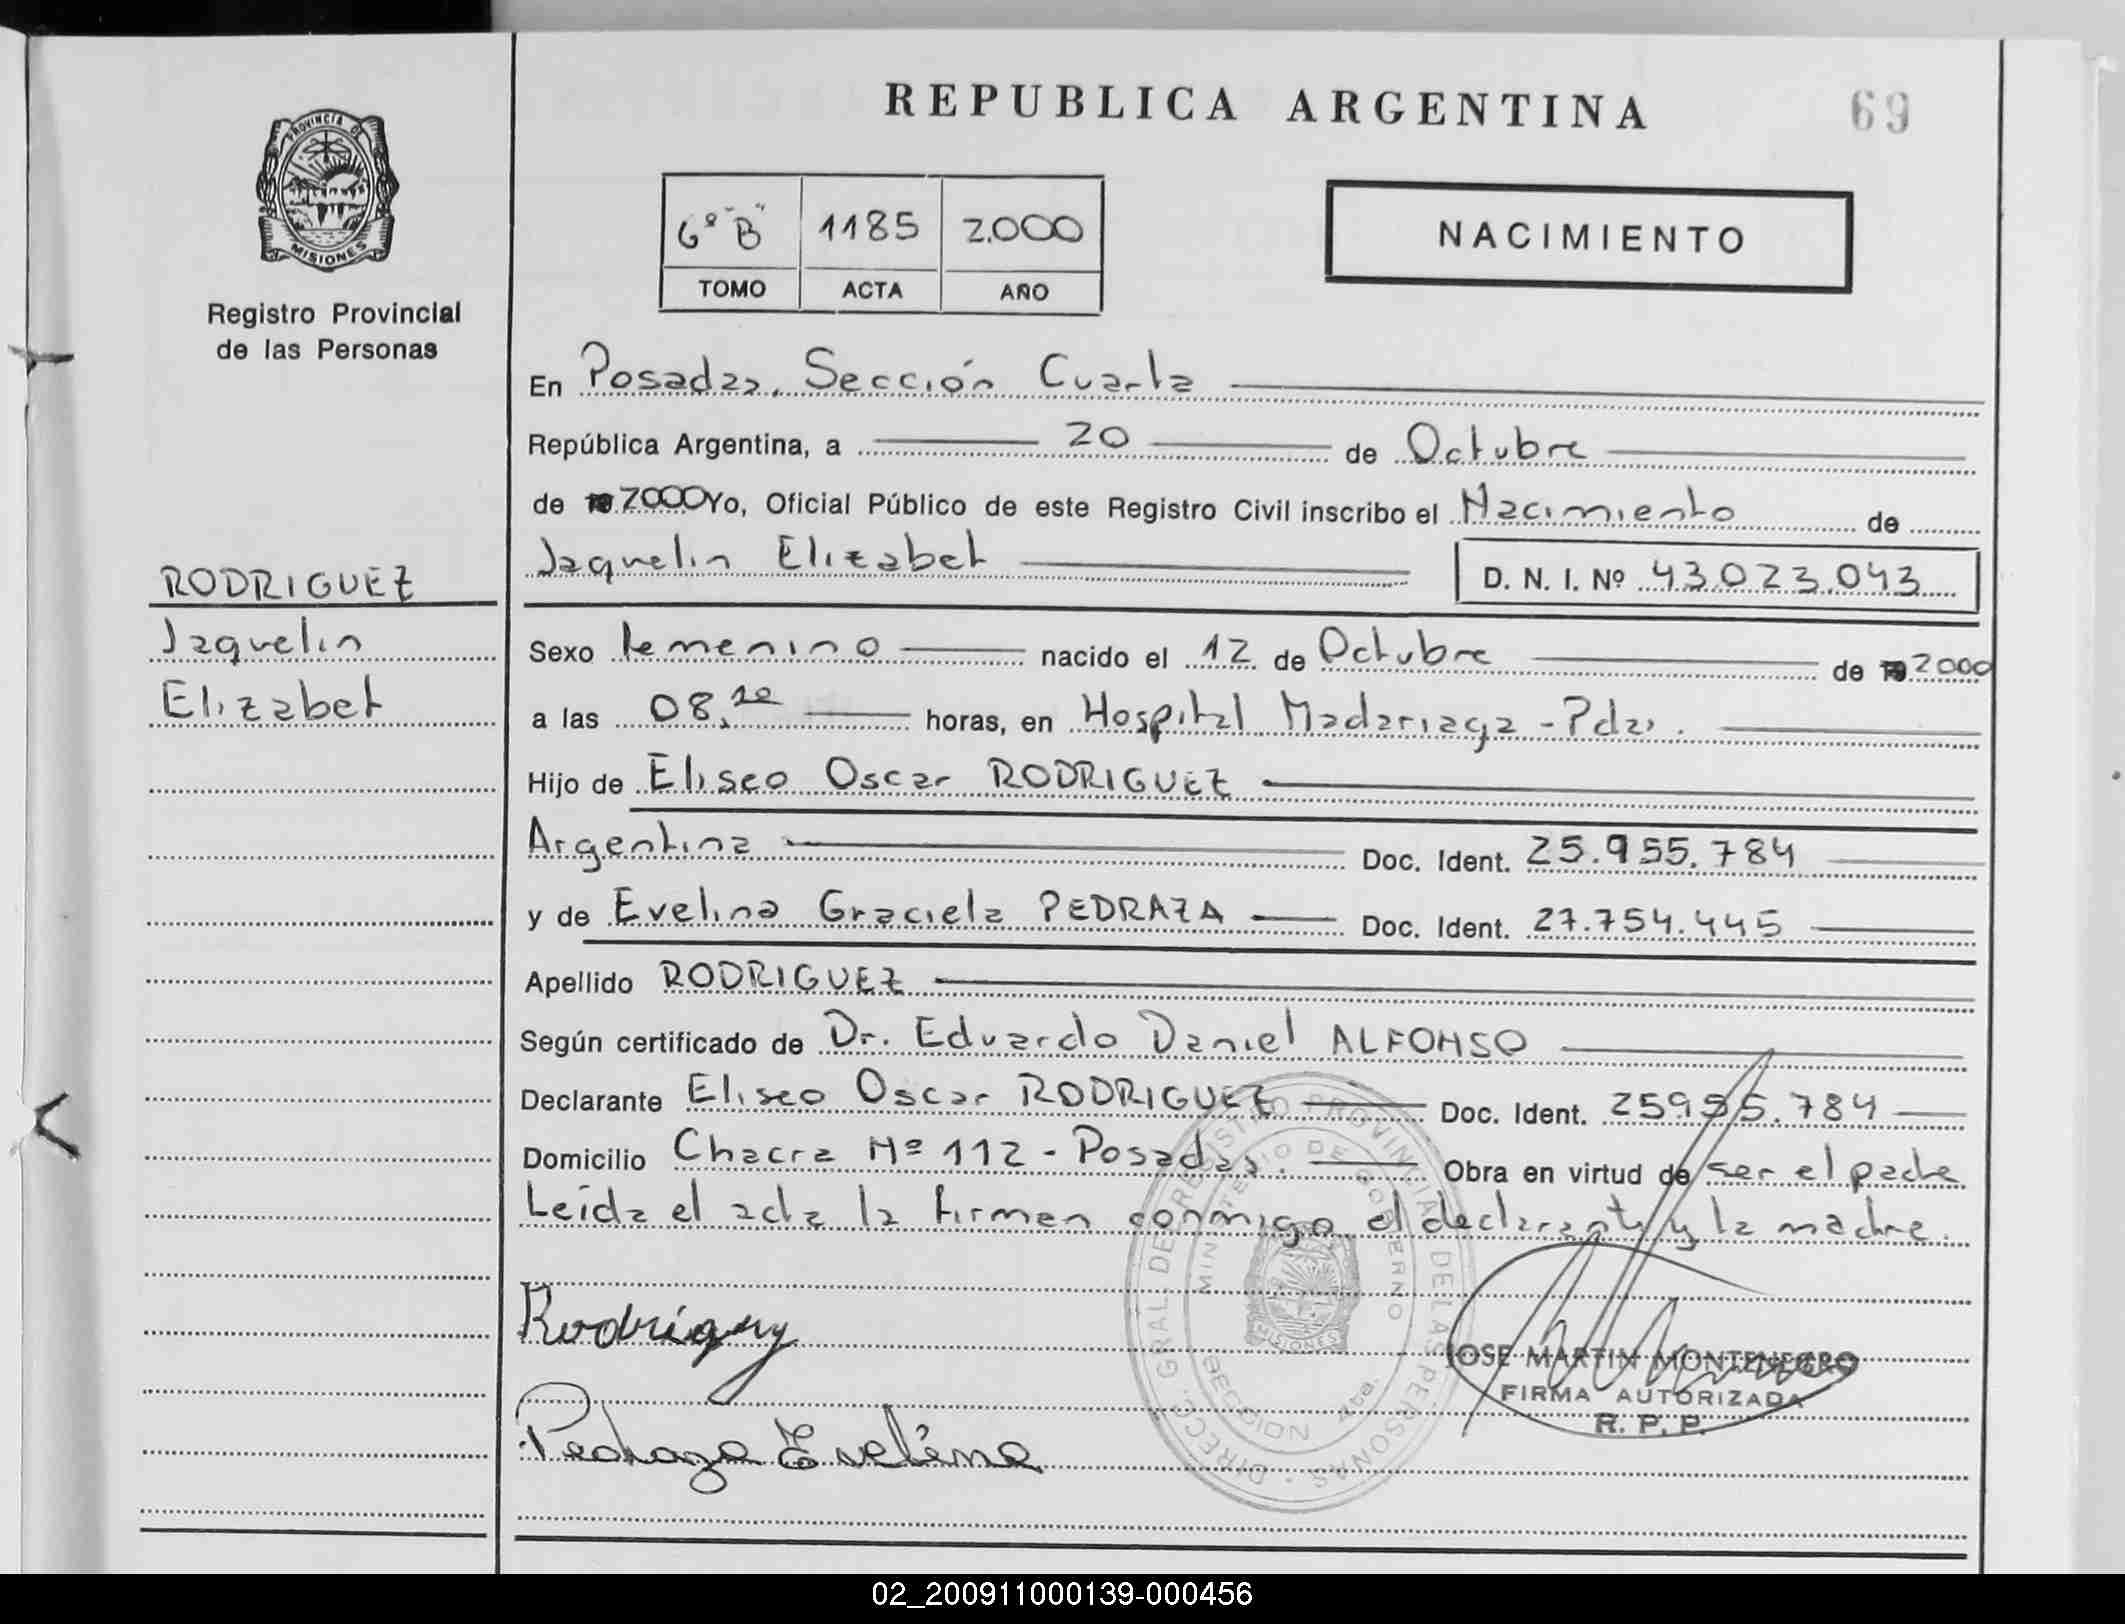 REPUBLICA ARGENTINA
69
PROVINCIA DE
MISIONES
Registro Provincial
de las Personas
6º "B" 1185 2.000
TOMO ACTA AÑO
NACIMIENTO
En Posadas, Sección Cuarta
República Argentina, a 20 de Octubre
de 2000 Yo, Oficial Público de este Registro Civil inscribo el Nacimiento de
Jaquelin Elizabet D. N. I. Nº 43.023.043
RODRIGUEZ
Jaquelin
Elizabet
Sexo femenino nacido el 12 de Octubre de 2000
a las 08,10 horas, en Hospital Madariaga - Pdas.
Hijo de Eliseo Oscar RODRIGUEZ
Argentina Doc. Ident. 25.955.784
y de Evelina Graciela PEDRAZA Doc. Ident. 27.754.445
Apellido RODRIGUEZ
Según certificado de Dr. Eduardo Daniel ALFONSO
Declarante Eliseo Oscar RODRIGUEZ Doc. Ident. 25955.784
Domicilio Chacra Nº 112 - Posadas. Obra en virtud de ser el padre
Leída el acta la firman conmigo el declarante y la madre.
DIRECC. GRAL. DE REGISTRO PROVINCIAL DE LAS PERSONAS
MINISTERIO DE GOBIERNO
SECCION 4ta.
MISIONES
Rodriguez
Pedraza Evelina
JOSE MARTIN MONTENEGRO
FIRMA AUTORIZADA
R. P. P.
02_200911000139-000456